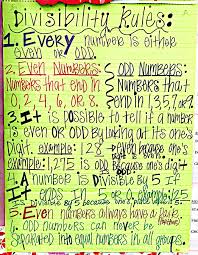 Divisibility Rules:
1. Every number is either
even or odd.
2. Even Numbers: Odd Numbers:
Numbers that end in Numbers that
0, 2, 4, 6, or 8. end in 1, 3, 5, 7, or 9.
3. It is possible to tell if a number
is even or odd by looking at its one's
Digit. example: 128 = even because one's
digit is even.
example: 1,275 is odd because one's digit
is odd.
4. A number is Divisible by 5 if
It ends in 5 or 0. example: 25
is Divisible by 5 because one's place value is 5.
5. Even numbers always have a pair.
6. odd numbers can never be
separated into equal numbers in all groups.